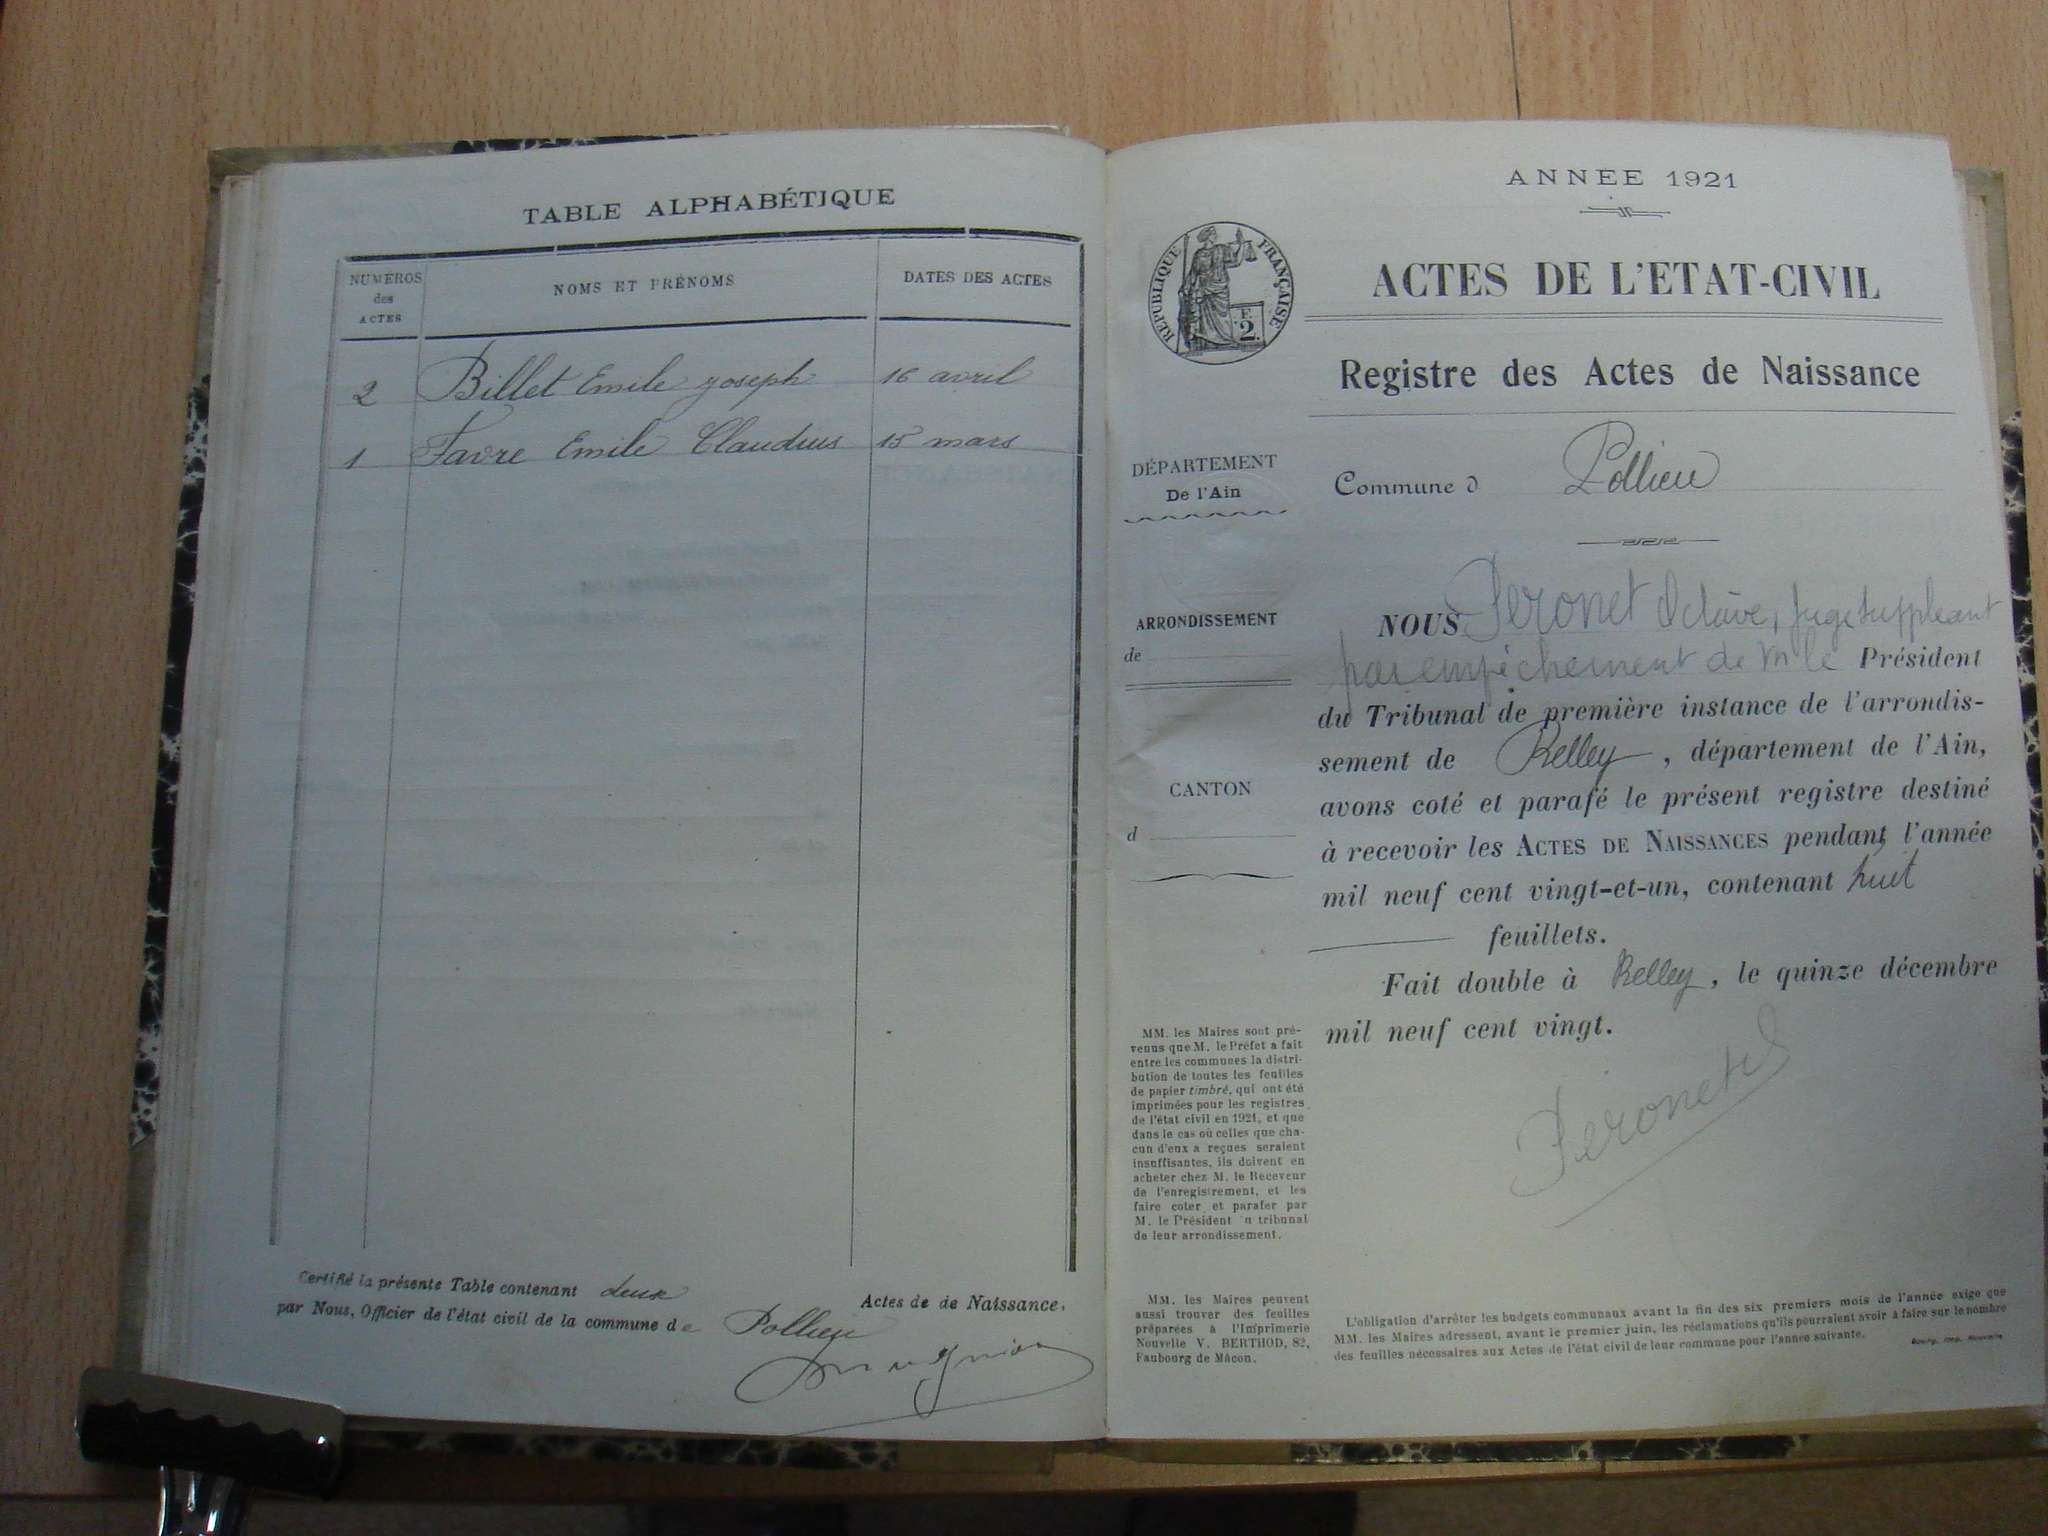 TABLE ALPHABÉTIQUE
NUMÉROS
des
ACTES
NOMS ET PRÉNOMS
DATES DES ACTES
2 Billet Emile Joseph 16 avril
1 Favre Emile Claudius 15 mars
Certifié la présente Table contenant deux Actes de de Naissance,
par Nous, Officier de l'état civil de la commune de Pollieu
ANNÉE 1921
RÉPUBLIQUE FRANÇAISE
F.
2.
ACTES DE L'ETAT-CIVIL
Registre des Actes de Naissance
DÉPARTEMENT
De l'Ain
Commune d Pollieu
ARRONDISSEMENT
de
CANTON
d
NOUS Peronet Octave, juge suppléant
par empêchement de M le Président
du Tribunal de première instance de l'arrondis-
sement de Belley, département de l'Ain,
avons coté et parafé le présent registre destiné
à recevoir les ACTES DE NAISSANCES pendant l'année
mil neuf cent vingt-et-un, contenant huit
feuillets.
Fait double à Belley, le quinze décembre
mil neuf cent vingt.
Peronet
MM. les Maires sont pré-
venus que M. le Préfet a fait
entre les communes la distri-
bution de toutes les feuilles
de papier timbré, qui ont été
imprimées pour les registres
de l'état civil en 1921, et que
dans le cas où celles que cha-
cun d'eux a reçues seraient
insuffisantes, ils doivent en
acheter chez M. le Receveur
de l'enregistrement, et les
faire coter et parafer par
M. le Président u tribunal
de leur arrondissement.
MM. les Maires peuvent
aussi trouver des feuilles
préparées à l'Imprimerie
Nouvelle V. BERTHOD, 82,
Faubourg de Mâcon.
L'obligation d'arrêter les budgets communaux avant la fin des six premiers mois de l'année exige que
MM. les Maires adressent, avant le premier juin, les réclamations qu'ils pourraient avoir à faire sur le nombre
des feuilles nécessaires aux Actes de l'état civil de leur commune pour l'année suivante.
Bourg, Imp. Nouvelle